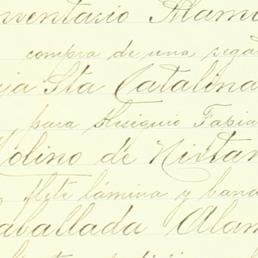 nventario Alami
compra de una sega
ja Sta Catalina
para Hisiquio Tapia
olino de Nixtam
flete lámina y banc
aballada Alam